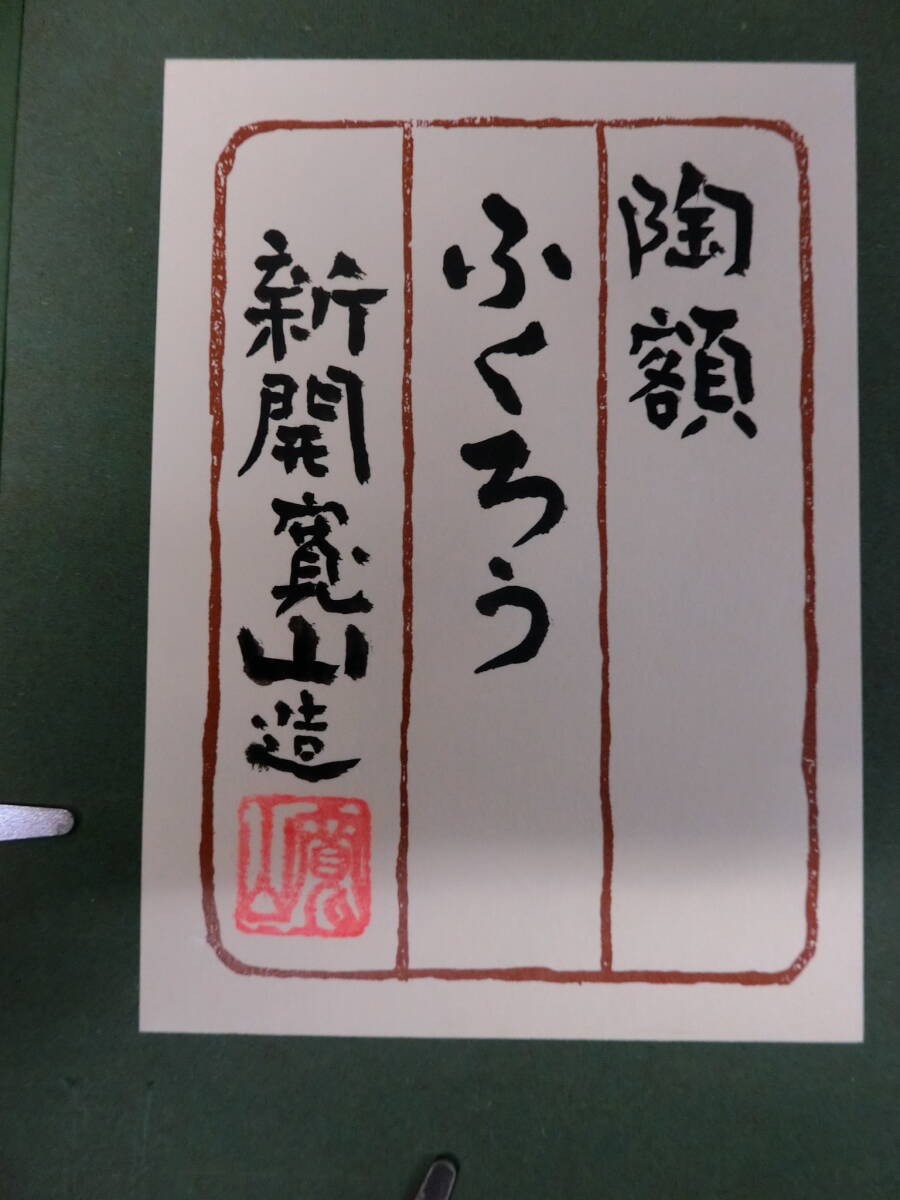 陶額
ふくろう
新開寛山造
寛山